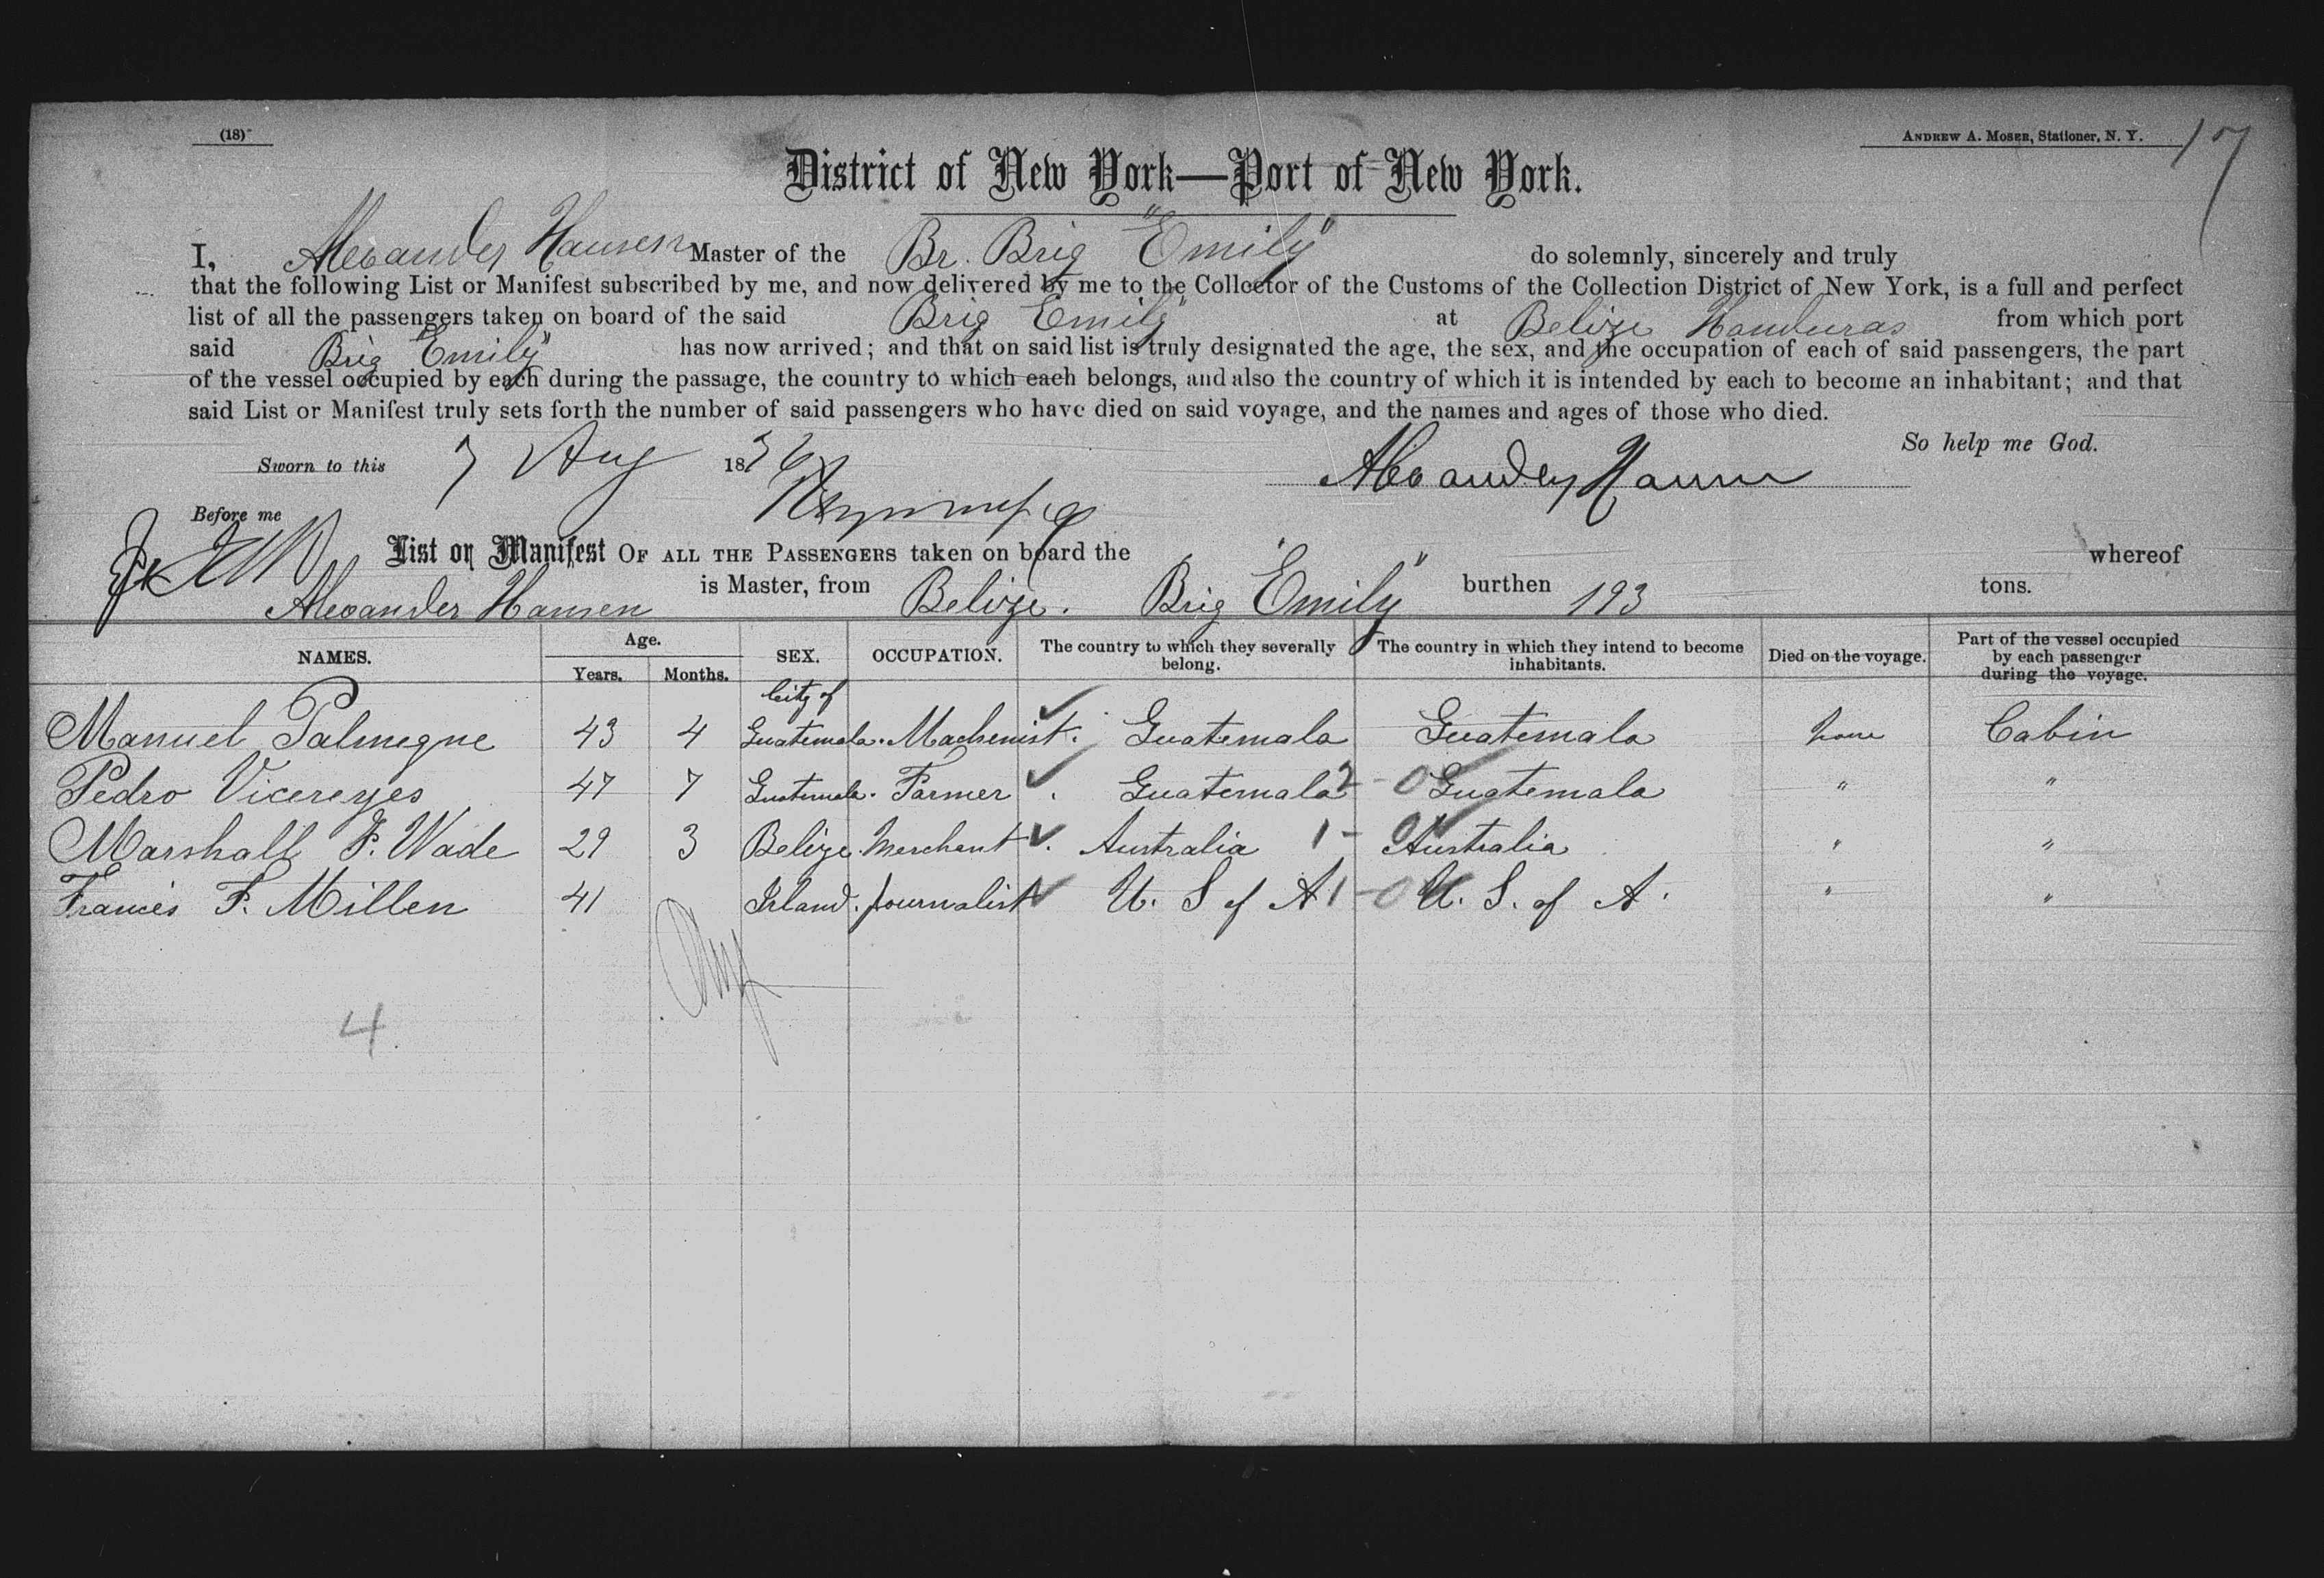 (18)
ANDREW A. MOSER, Stationer, N. Y.
17
District of New York—Port of New York.
I, Alexander Hansen Master of the Br. Brig "Emily" do solemnly, sincerely and truly
that the following List or Manifest subscribed by me, and now delivered by me to the Collector of the Customs of the Collection District of New York, is a full and perfect
list of all the passengers taken on board of the said Brig Emily at Belize Honduras from which port
said Brig "Emily" has now arrived; and that on said list is truly designated the age, the sex, and the occupation of each of said passengers, the part
of the vessel occupied by each during the passage, the country to which each belongs, and also the country of which it is intended by each to become an inhabitant; and that
said List or Manifest truly sets forth the number of said passengers who have died on said voyage, and the names and ages of those who died.
So help me God.
Sworn to this 7 Aug 18
Alexander Hansen
Before me
List or Manifest OF ALL THE PASSENGERS taken on board the Brig "Emily" whereof
Alexander Hansen is Master, from Belize. burthen 193 tons.
NAMES. Age. Years. Months. SEX. OCCUPATION. The country to which they severally belong. The country in which they intend to become inhabitants. Died on the voyage. Part of the vessel occupied by each passenger during the voyage.
Manuel Palmegne 43 4 City of Guatemala. Machenist. Guatemala Guatemala none Cabin
Pedro Vicereyes 47 7 Guatemala. Farmer Guatemala 2 - 0 Guatemala " "
Marshall F. Wade 29 3 Belize. Merchant Australia 1 - 0 Australia " "
Francis F. Millen 41 Irland. journalist U. S of A 1 - 0 U. S. of A. " "
4